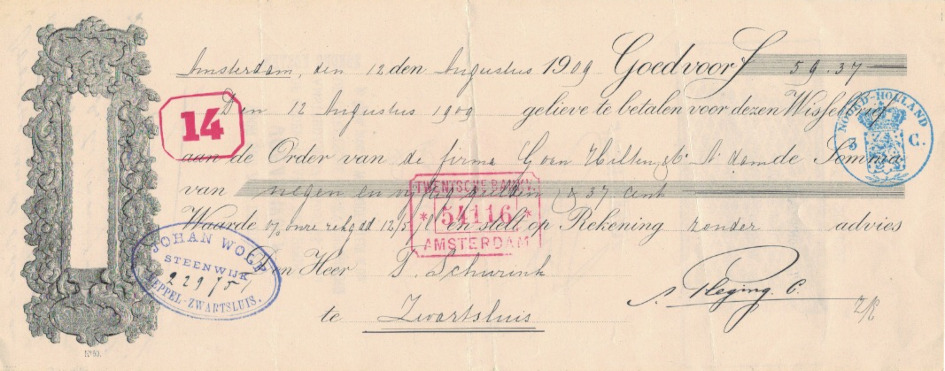 Amsterdam, den 12 den Augustus 1909 Goed voor ƒ 59.37
Den 12 Augustus 1909 gelieve te betalen voor dezen Wisselbrief
14
NOORD-HOLLAND
3 C.
aan de Order van de firma de Somma
van negen en gulden & 37 cent
TWENTSCHE BANKV.
* 54116 *
AMSTERDAM
Waarde o/ onze rekg dd 12/5 en stelt op Rekening zonder advies
JOHAN WOLF
STEENWIJK
229/5
MEPPEL-ZWARTSLUIS.
Den Heer Schurink
te Zwartsluis
No 10.